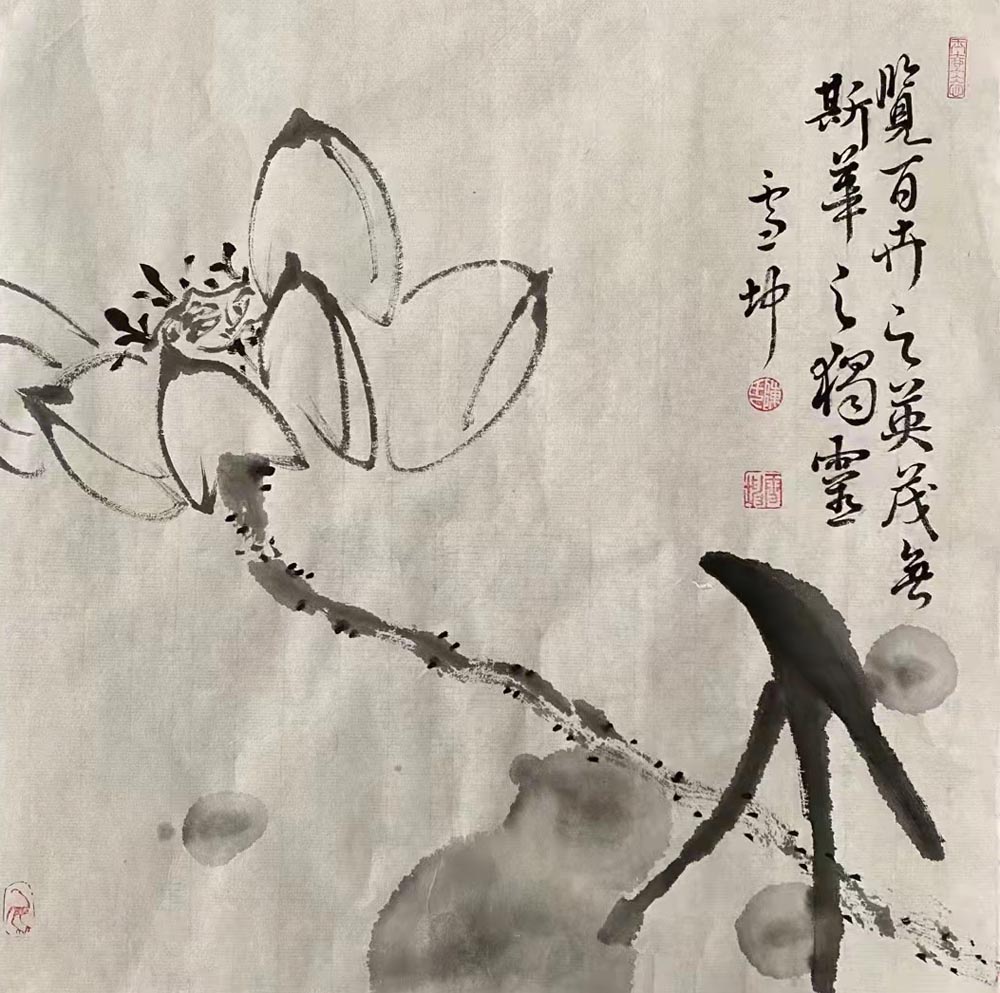 覽百卉之英茂無
斯華之獨靈
雪坤